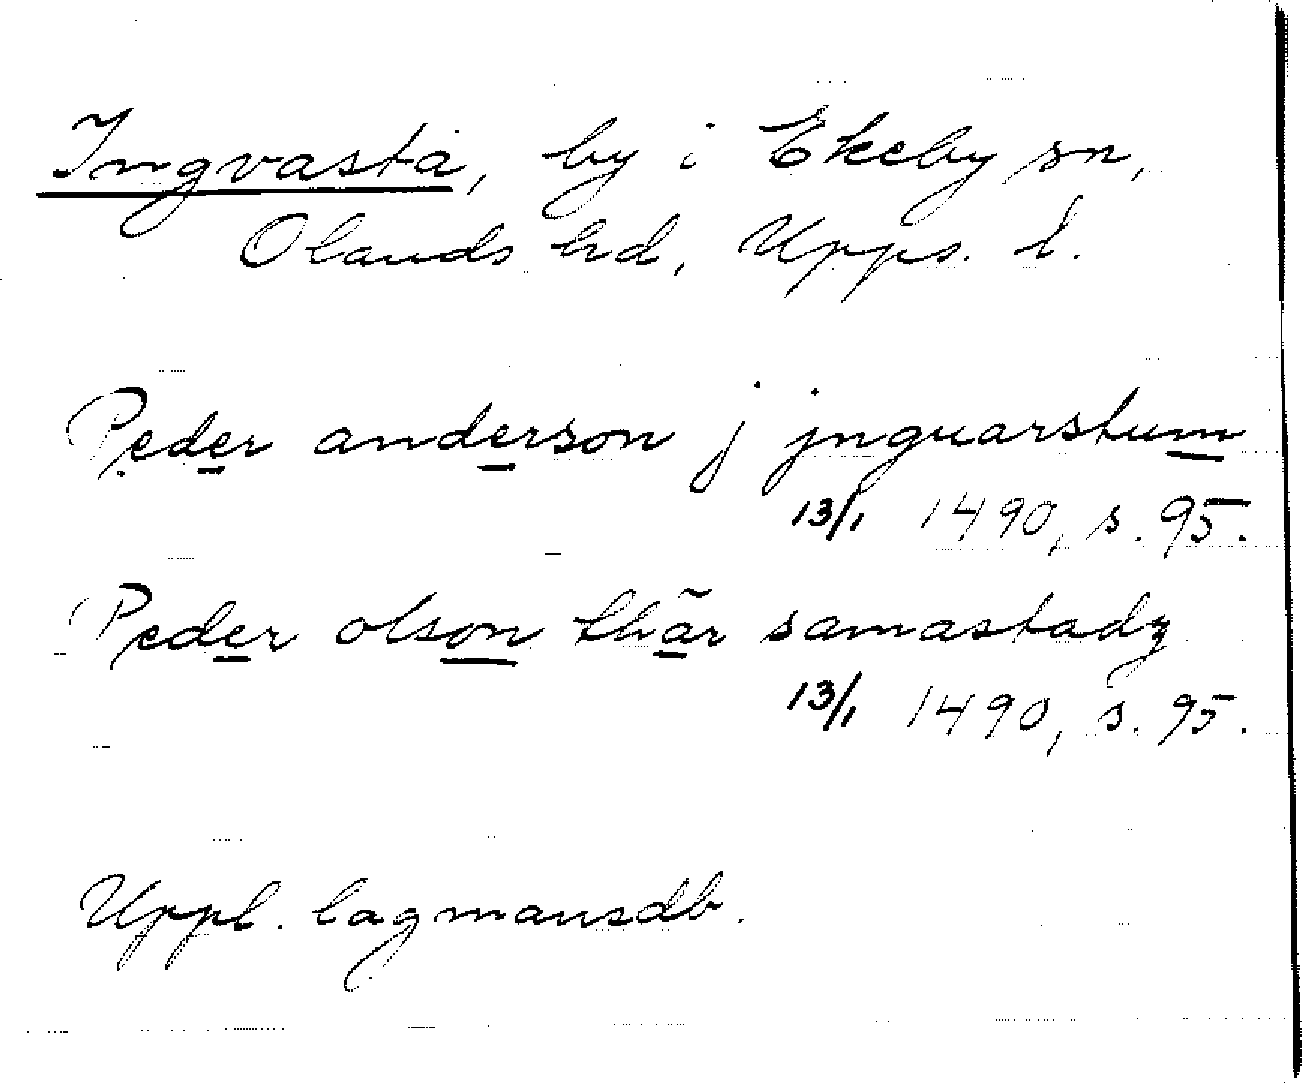 Ingvasta, by i Ekeby sn,
Olands hd, Upps. l.
Peder anderson j jnguarstum
13/1 1490, s. 95.
Peder olson thär samastadz
13/1 1490, s. 95.
Uppl. lagmansdb.